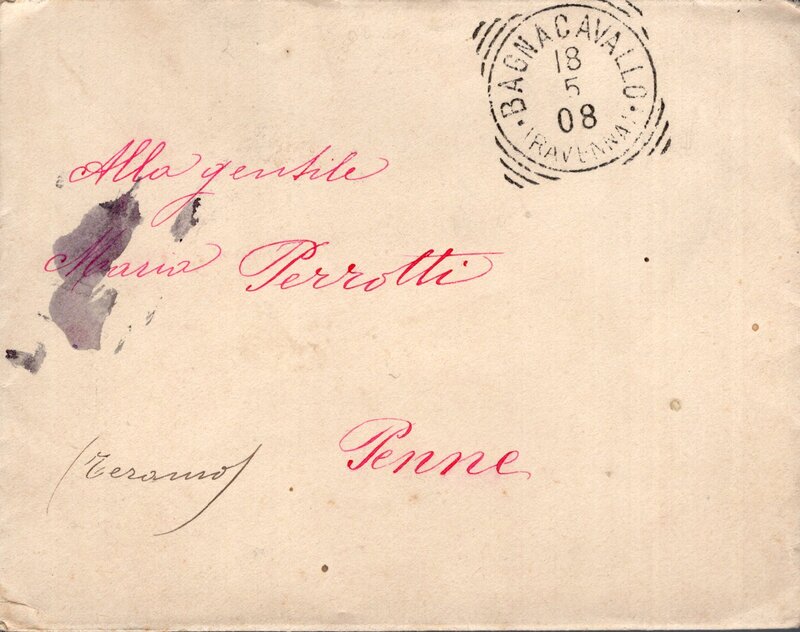 BAGNACAVALLO
18
5
08
(RAVENNA)
Alla gentile
Maria Perrotti
Penne
(Teramo)